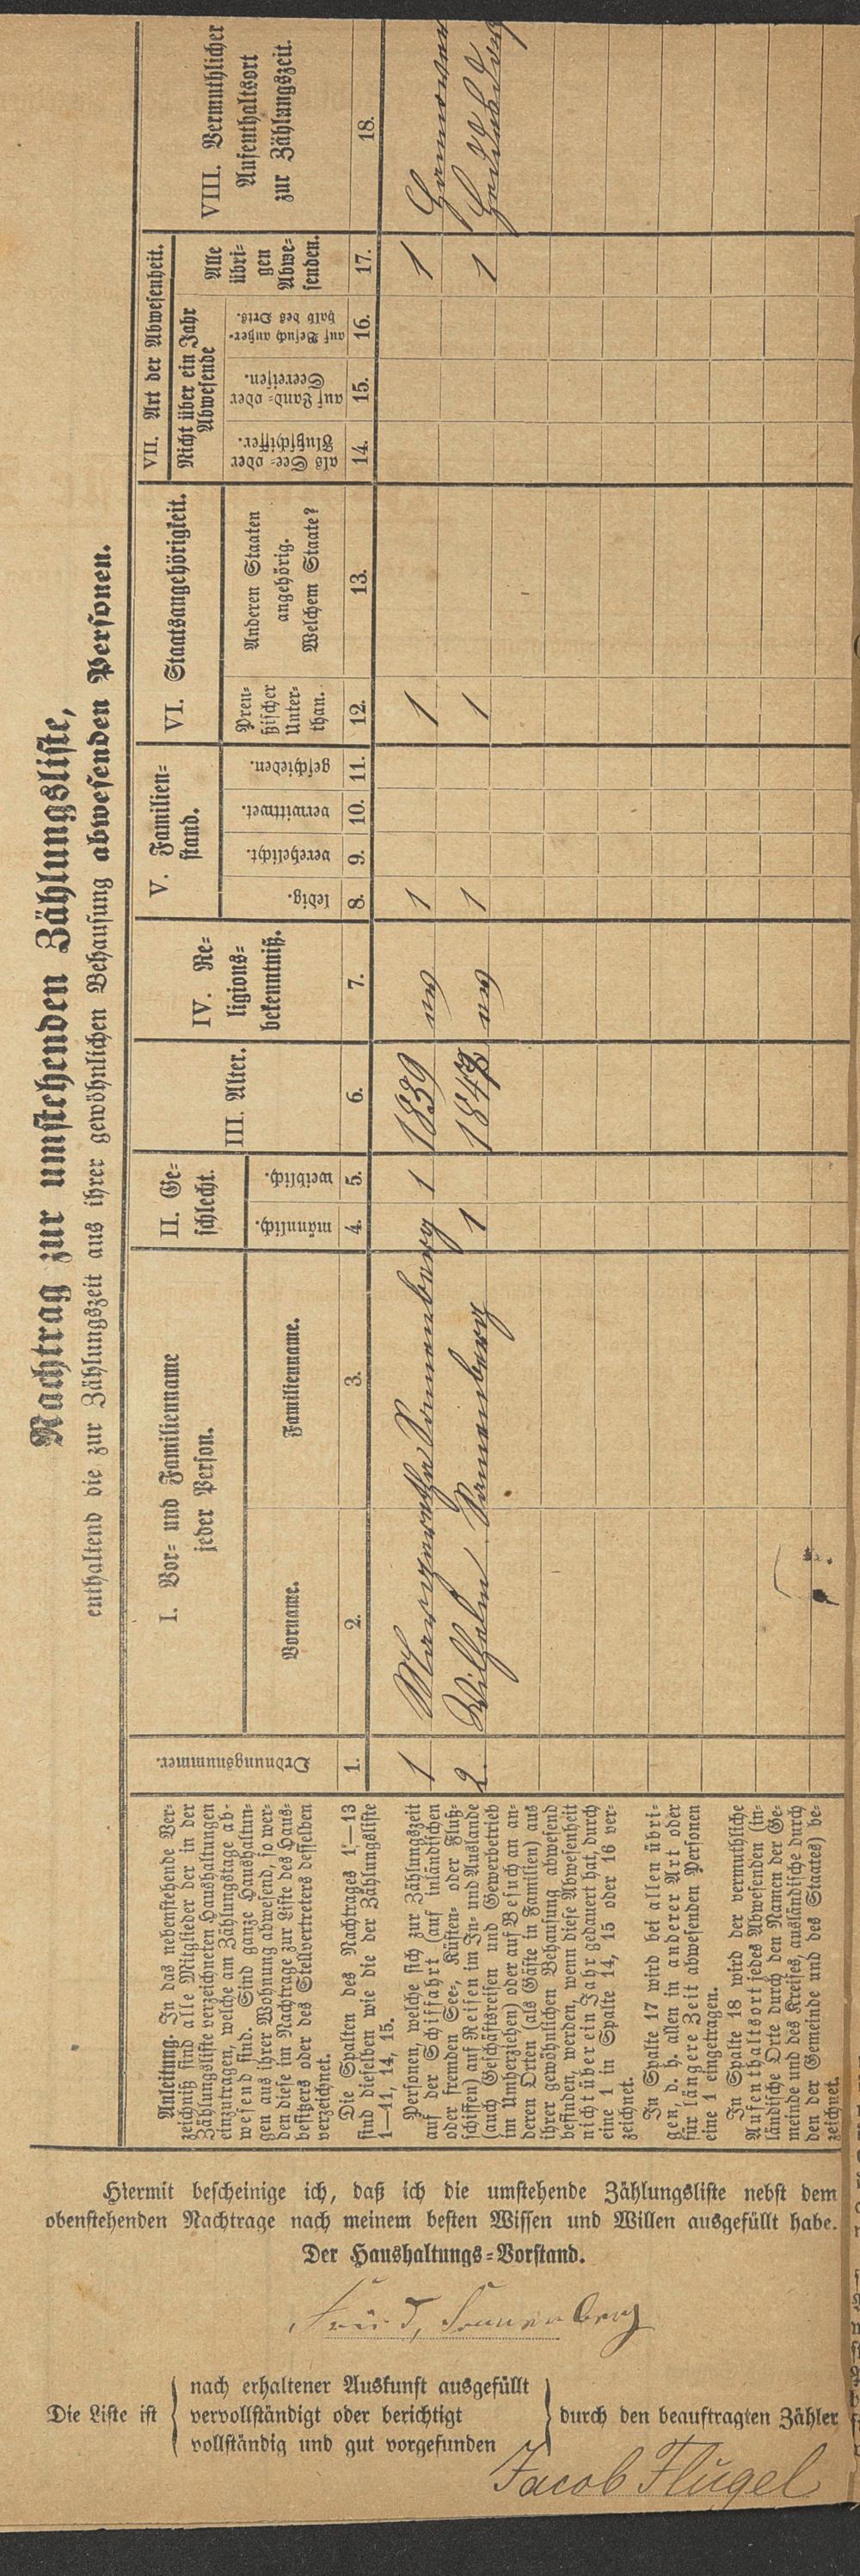 Nachtrag zur umstehenden Zählungsliste,
enthaltend die zur Zählungszeit aus ihrer gewöhnlichen Behausung abwesenden Personen.
Anleitung. In das nebenstehende Ver-
zeichniß sind alle Mitglieder der in der
Zählungsliste verzeichneten Haushaltungen
einzutragen, welche am Zählungstage ab-
wesend sind. Sind ganze Haushaltun-
gen aus ihrer Wohnung abwesend, so wer-
den diese im Nachtrage zur Liste des Haus-
besitzers oder des Stellvertreters desselben
verzeichnet.
Die Spalten des Nachtrages 1—13
sind dieselben wie die der Zählungsliste
1—11, 14, 15.
Personen, welche sich zur Zählungszeit
auf der Schiffahrt (auf inländischen
oder fremden See-, Küsten- oder Fluß-
schiffen) auf Reisen im In- und Auslande
(auch Geschäftsreisen und Gewerbetrieb
im Umherziehen) oder auf Besuch an an-
deren Orten (als Gäste in Familien) aus
ihrer gewöhnlichen Behausung abwesend
befinden, werden, wenn diese Abwesenheit
nicht über ein Jahr gedauert hat, durch
eine 1 in Spalte 14, 15 oder 16 ver-
zeichnet.
In Spalte 17 wird bei allen übri-
gen, d. h. allen in anderer Art oder
für längere Zeit abwesenden Personen
eine 1 eingetragen.
In Spalte 18 wird der vermuthliche
Aufenthaltsort jedes Abwesenden (in-
ländische Orte durch den Namen der Ge-
meinde und des Kreises, ausländische durch
den der Gemeinde und des Staates) be-
zeichnet.
Ordnungsnummer.
1.
I. Vor- und Familienname
jeder Person.
Vorname.
2.
Familienname.
3.
II. Ge-
schlecht.
männlich.
4.
weiblich.
5.
III. Alter.
6.
IV. Re-
ligions-
bekenntniß.
7.
V. Familien-
stand.
ledig.
8.
verehelicht.
9.
verwittwet.
10.
geschieden.
11.
VI. Staatsangehörigkeit.
Preu-
ßischer
Unter-
than.
12.
Anderen Staaten
angehörig.
Welchem Staate?
13.
VII. Art der Abwesenheit.
Nicht über ein Jahr
Abwesende
als See- oder
Flußschiffer.
14.
auf Land- oder
Seereisen.
15.
auf Besuch außer-
halb des Orts.
16.
Alle
übri-
gen
Abwe-
senden.
17.
VIII. Vermuthlicher
Aufenthaltsort
zur Zählungszeit.
18.
1 Margarethe Sonnenberg 1 1839 ev 1 1 1 Hannover
2. Wilhelm Sonnenberg 1 ev 1 1 1
Hiermit bescheinige ich, daß ich die umstehende Zählungsliste nebst dem
obenstehenden Nachtrage nach meinem besten Wissen und Willen ausgefüllt habe.
Der Haushaltungs-Vorstand.
Sonnenberg
Die Liste ist
nach erhaltener Auskunft ausgefüllt
vervollständigt oder berichtigt
vollständig und gut vorgefunden
durch den beauftragten Zähler
Jacob Flügel